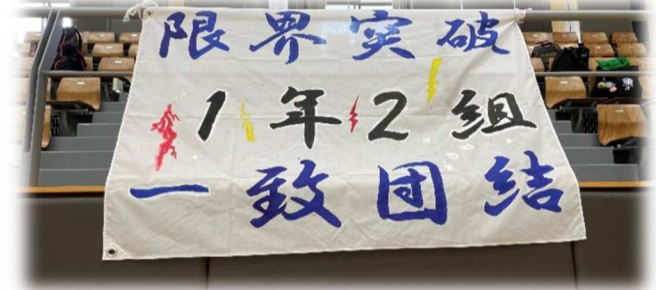 限界突破
1年2組
一致団結